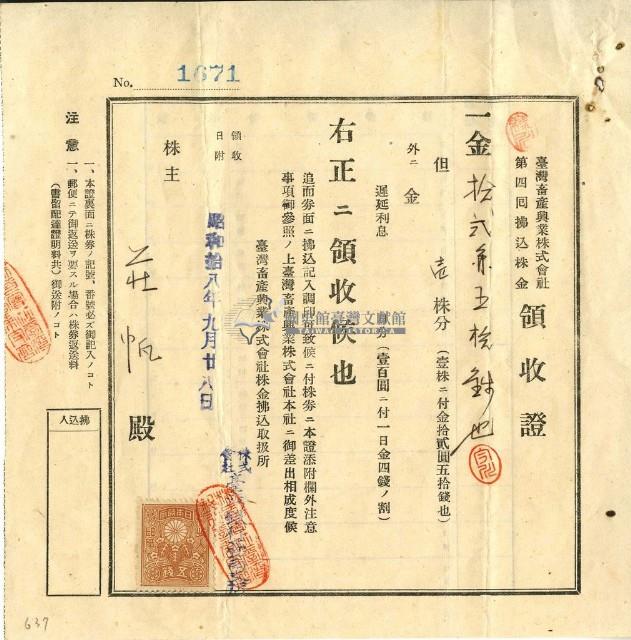 No. 1671
臺灣畜產興業株式會社
第四回拂込株金
領收證
一金 拾弍円五拾銭也
但 壱株分(壹株ニ付金拾貳圓五拾錢也)
外ニ金
遲延利息 分(壹百圓ニ付一日金四錢ノ割)
右正ニ領收候也
追而券面ニ拂込記入調印可致候ニ付株券ニ本證添附欄外注意
事項御參照ノ上臺灣畜產興業株式會社本社ニ御差出相成度候
臺灣畜產興業株式會社株金拂込取扱所
領收
日附
昭和拾八年九月廿八日
株式
會社
株主
莊帆
殿
注意
一、本證裏面ニ株券ノ記號、番號必ズ御記入ノコト
一、郵便ニテ御返送ヲ要スル場合ハ株券返送料
(書留配達證明料共)御送附ノコト
拂込人
國史館臺灣文獻館
TAIWAN HISTORICA
五錢
637